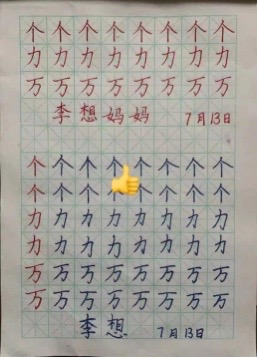 个个个个个个个个
力力力力力力力力
万万万万万万万万
李想妈妈 7月13日
个个个个个个个个
个个个个个个个个
力力力力力力力力
力力力力力力力力
万万万万万万万万
万万万万万万万万
李想 7月13日